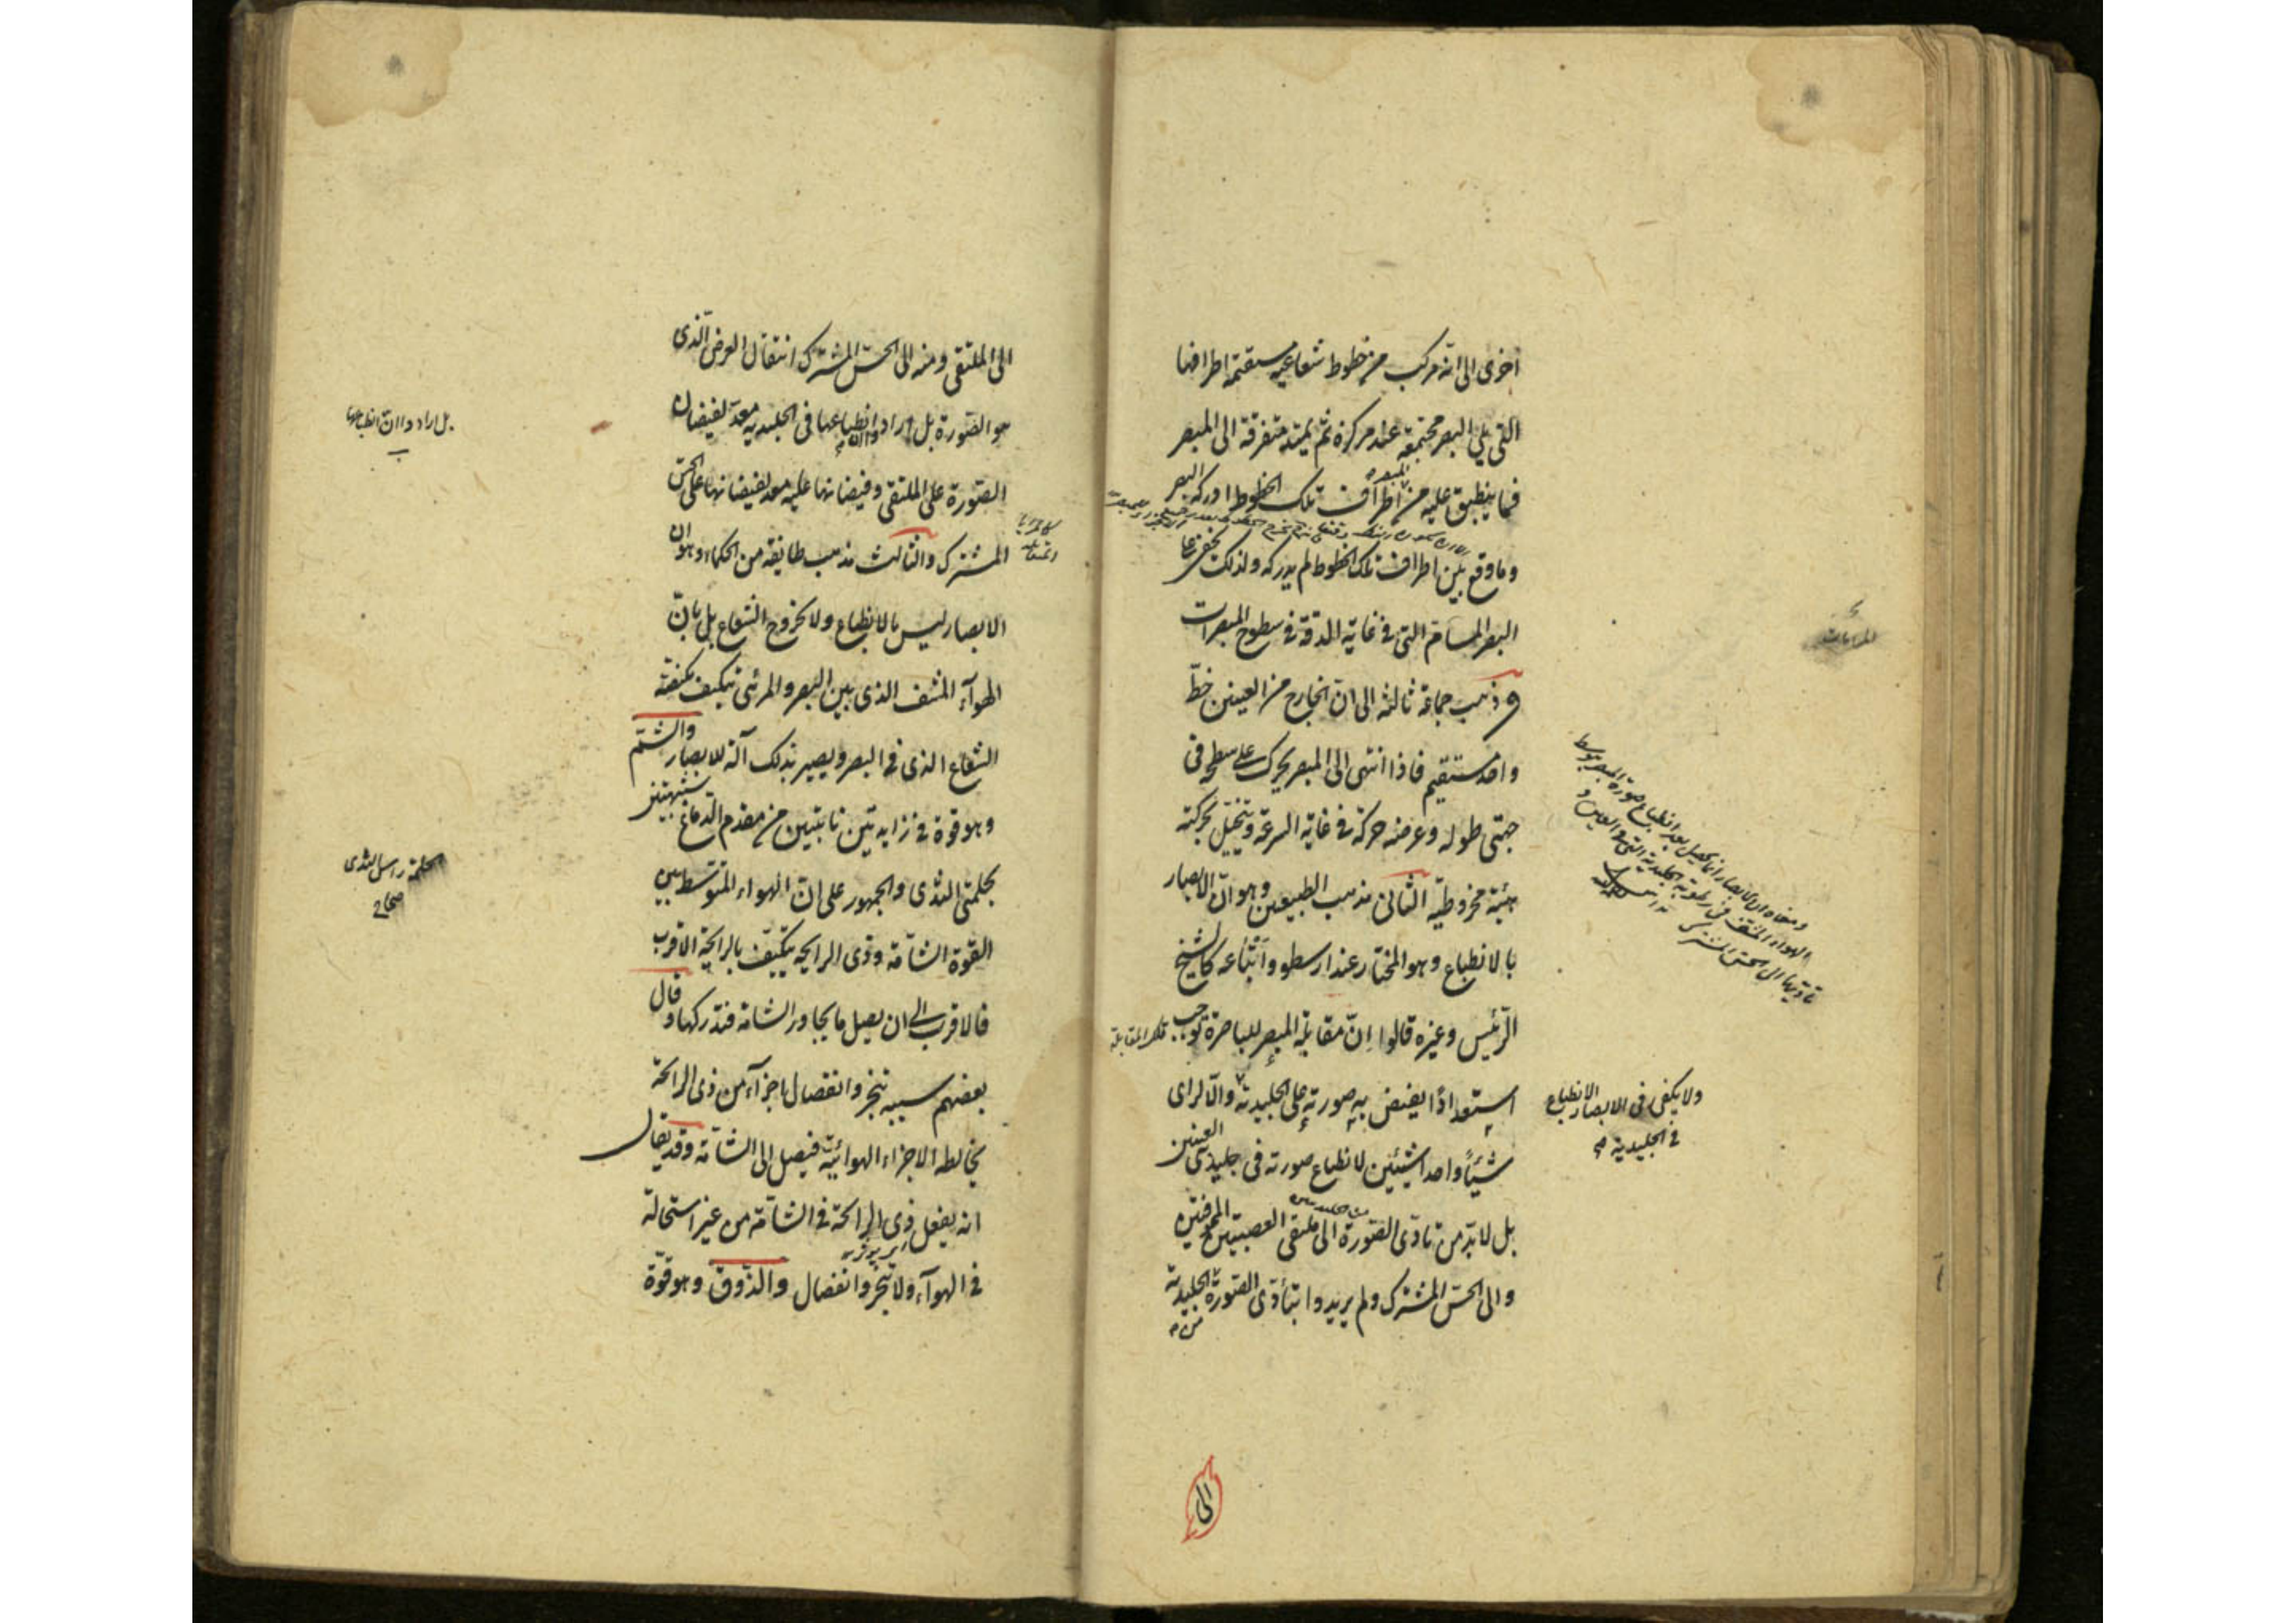 اخرى الى انه مركب من خطوط شعاعية مستقيمة اطرافها
التى يلى البصر مجتمعة عند مركزه ثم يمتد متفرقة الى المبصر
فما ينطبق عليه من اطراف تلك الخطوط ادركه البصر
وما وقع بين اطراف تلك الخطوط لم يدركه ولذلك يخفى على
البصر المسام التى فى غاية الدقة فى سطوح المبصرات
وذهب جماعة ثالثة الى ان الخارج من العينين خطّ
واحد مستقيم فاذا انتهى الى المبصر يحرك على سطحه فى
جهتى طوله وعرضه حركة فى غاية السرعة ويتخيل بحركته
هيئة مخروطيّة الثانى مذهب الطبيعيين وهو انّ الابصار
بالانطباع وهو المختار عند ارسطو واتباعه كالشيخ
الرّئيس وغيره قالوا اِنّ مقابلة المبصر للباصرة توجب
تلك المقابلة
استعدادًا يفيض به صورته على الجليدية والّا لراى
شيئًا واحدا شيئين لانطباع صورته فى جليدتى العينين
بل لا بدّ من تادّى الصّورة الى ملتقى العصبتين المجوفتين
والى الحسّ المشترك ولم يريدوا بتأدّى الصّورة الجليدية
من
ولا يكفى فى الابصار الانطباع
فى الجليدية
الى
الى الملتقى ومنه الى الحسّ المشترك انتقال العرض الّذى
هو الصّورة بل اراد وا ان انطباعها فى الجليدية معدّ لفيضان
الصّورة على الملتقى وفيضانها عليه معد لفيضانها على الحسّ
المشترك والثالث مذهب طايفة من الحكماء وهو ان
الابصار ليس بالانطباع ولا بخروج الشعاع بل بانّ
الهوآء المشف الذى بين البصر والمرئى يتكيف بكيفيّة
الشعاع الذى فى البصر ويصير بذلك آلة للابصار والشمّ
وهو قوة فى زايدتين نابتتين من مقدم الدّماغ شبيهتين
بحلمتى الثدى والجمهور على انّ الهواء المتوسّط بين
القوّة الشامّة وذى الرايحة يتكيّف بالرايحة الاقرب
فالاقرب الى ان يصل ما يجاور الشامة فتدركها وقال
بعضهم سببه تبخر وانفصال اجزآء من ذى الرائحة
يخالطه الاجزاء الهوائية فيصل الى الشامّة وقد يقال
انه يفعل ذى الرائحة فى الشامّة من غير استحالة
فى الهوآء ولا تبخّر وانفصال والذّوق وهو قوّة
بل اراد وا ان انطباعها
الحلمة راس الثدى
صحاح